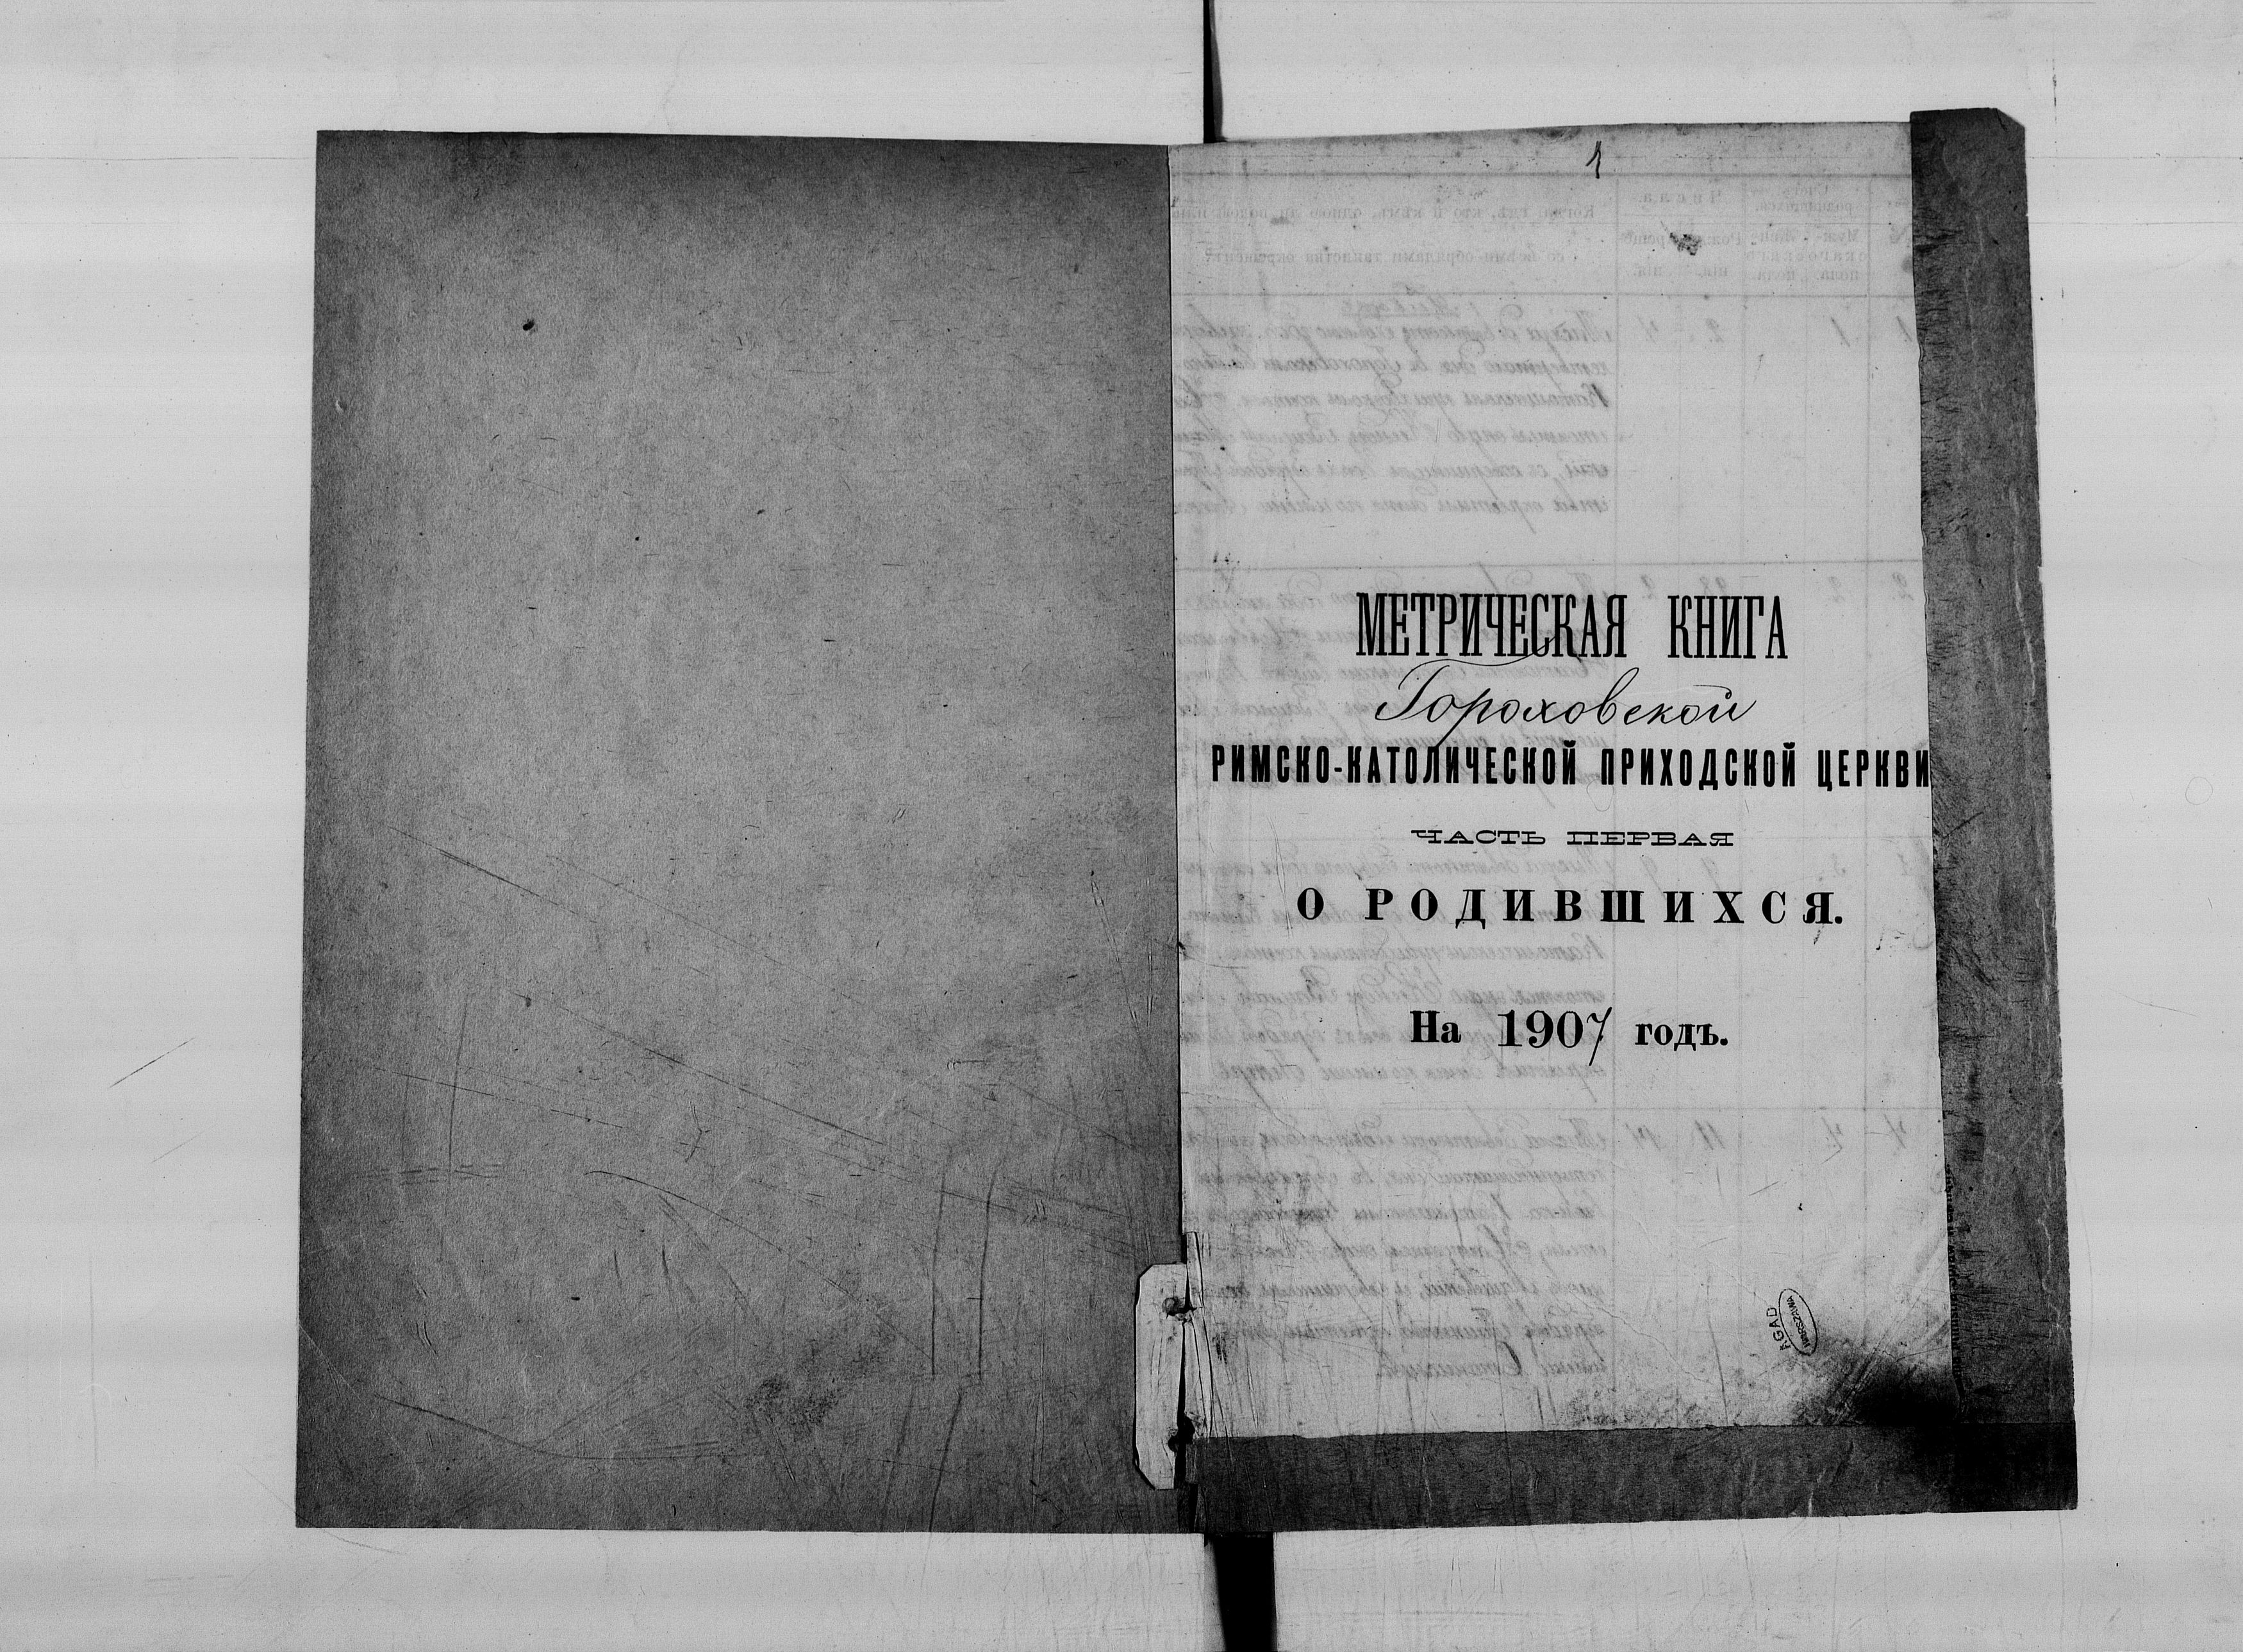 1
МЕТРИЧЕСКАЯ КНИГА
Гороховской
РИМСКО-КАТОЛИЧЕСКОЙ ПРИХОДСКОЙ ЦЕРКВИ
ЧАСТЬ ПЕРВАЯ
О РОДИВШИХСЯ.
На 1907 годъ.
AGAD
WARSZAWA